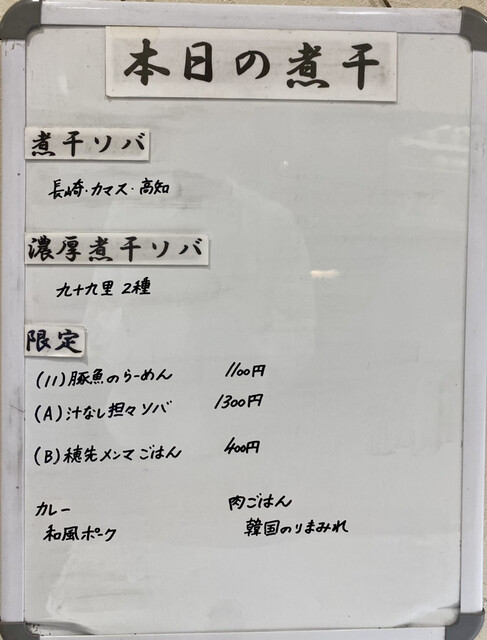 本日の煮干
煮干ソバ
長崎・カマス・高知
濃厚煮干ソバ
九十九里 2種
限定
(11)豚魚のらーめん 1100円
(A)汁なし担々ソバ 1300円
(B)穂先メンマごはん 400円
カレー 肉ごはん
和風ポーク 韓国のりまみれ